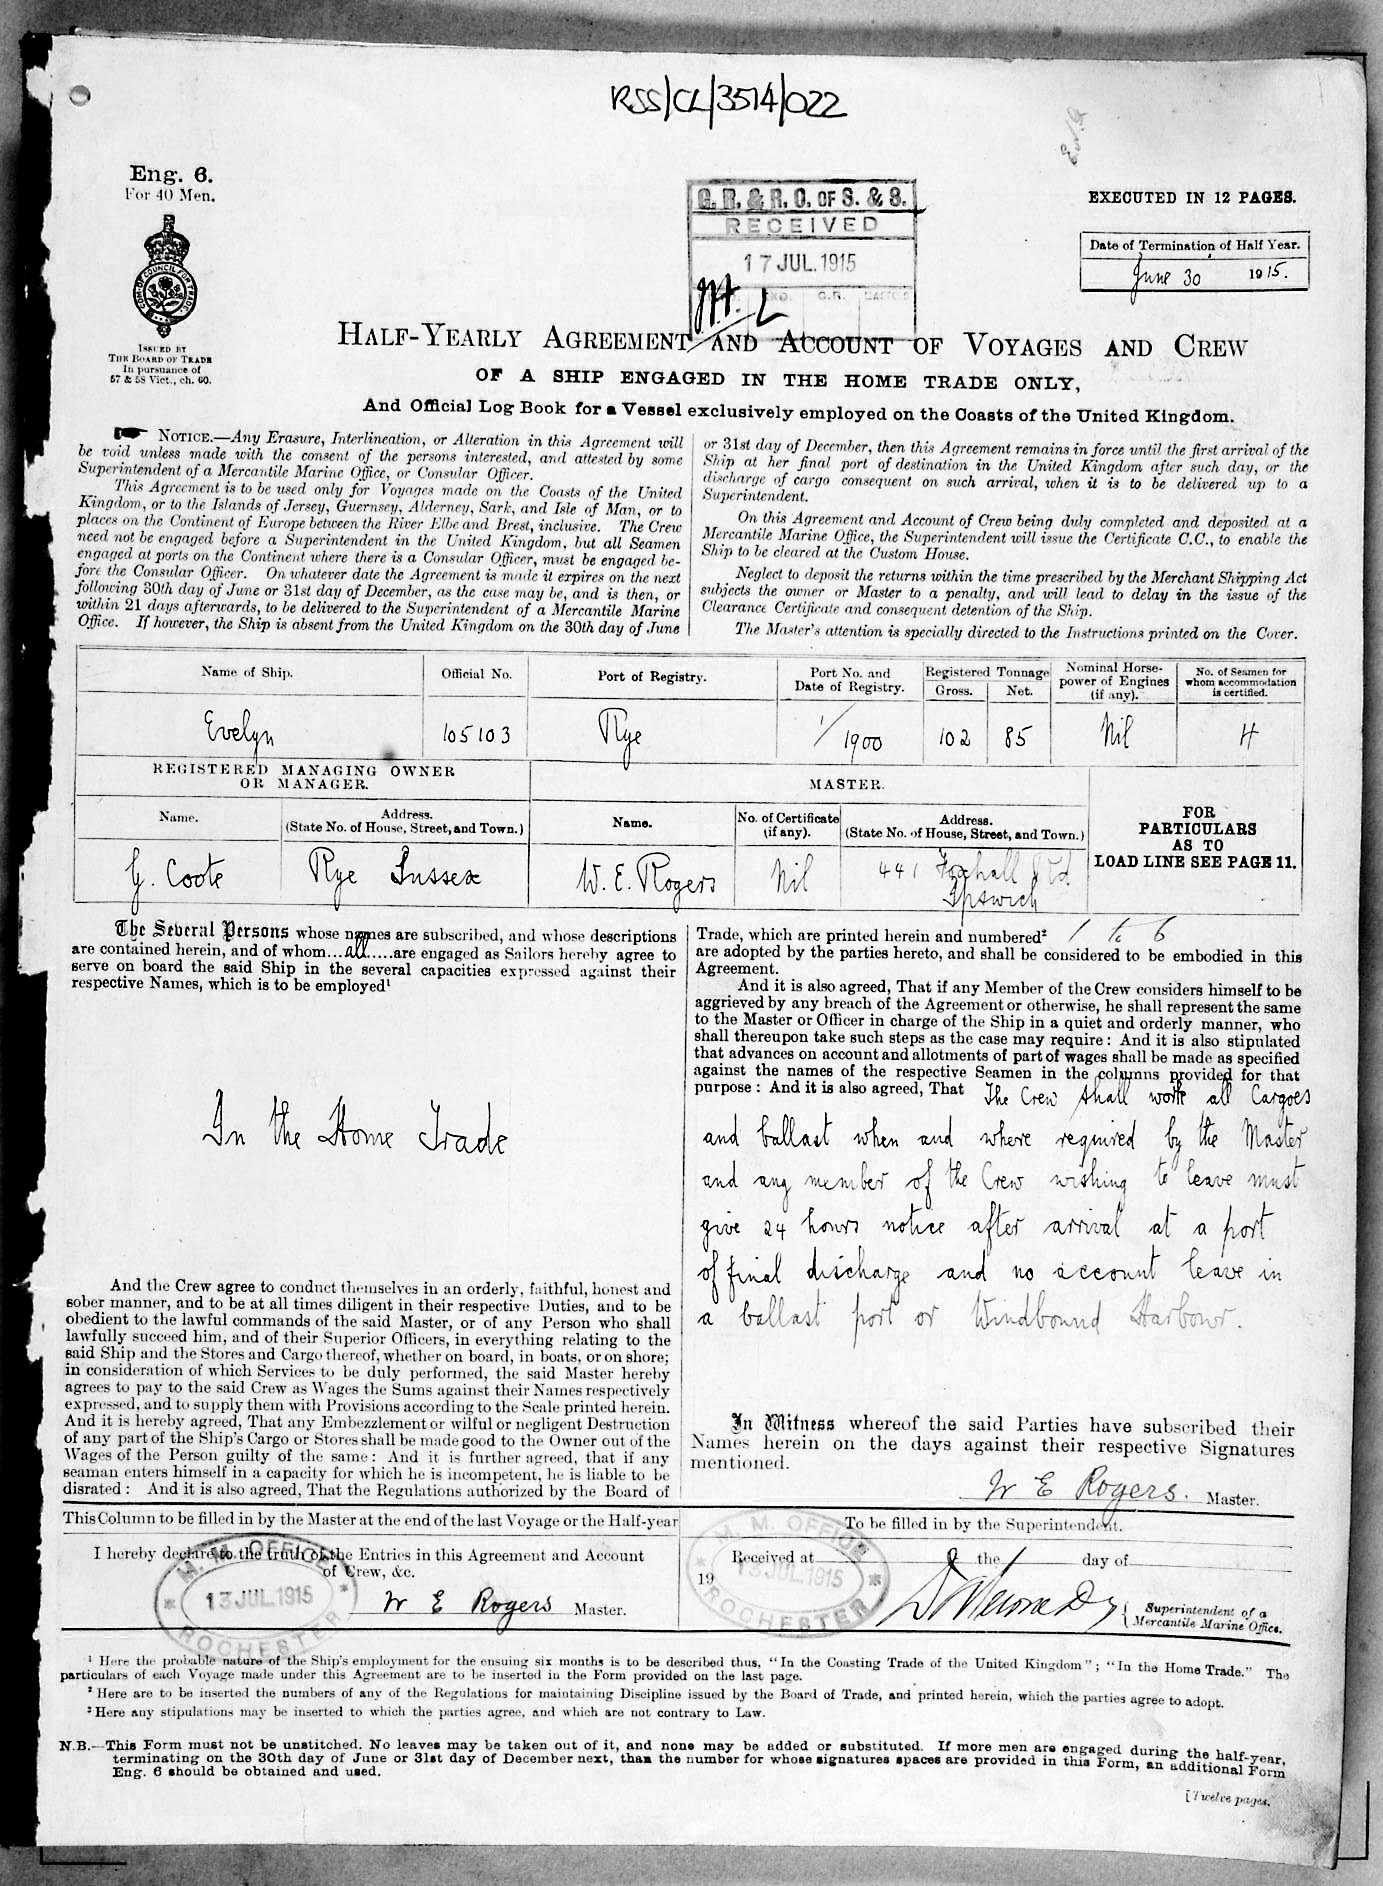 RSS/CL/3514/022
Eng. 6.
For 40 Men.
EXECUTED IN 12 PAGES.
G. R. & R. O. OF S. & S.
RECEIVED
17 JUL. 1915
Date of Termination of Half Year.
June 30 1915.
ISSUED BY
THE BOARD OF TRADE
In pursuance of
57 & 58 Vict., ch. 60.
HALF-YEARLY AGREEMENT AND ACCOUNT OF VOYAGES AND CREW
OF A SHIP ENGAGED IN THE HOME TRADE ONLY,
And Official Log Book for a Vessel exclusively employed on the Coasts of the United Kingdom.
NOTICE.—Any Erasure, Interlineation, or Alteration in this Agreement will
be void unless made with the consent of the persons interested, and attested by some
Superintendent of a Mercantile Marine Office, or Consular Officer.
This Agreement is to be used only for Voyages made on the Coasts of the United
Kingdom, or to the Islands of Jersey, Guernsey, Alderney, Sark, and Isle of Man, or to
places on the Continent of Europe between the River Elbe and Brest, inclusive. The Crew
need not be engaged before a Superintendent in the United Kingdom, but all Seamen
engaged at ports on the Continent where there is a Consular Officer, must be engaged be-
fore the Consular Officer. On whatever date the Agreement is made it expires on the next
following 30th day of June or 31st day of December, as the case may be, and is then, or
within 21 days afterwards, to be delivered to the Superintendent of a Mercantile Marine
Office. If however, the Ship is absent from the United Kingdom on the 30th day of June
or 31st day of December, then this Agreement remains in force until the first arrival of the
Ship at her final port of destination in the United Kingdom after such day, or the
discharge of cargo consequent on such arrival, when it is to be delivered up to a
Superintendent.
On this Agreement and Account of Crew being duly completed and deposited at a
Mercantile Marine Office, the Superintendent will issue the Certificate C.C., to enable the
Ship to be cleared at the Custom House.
Neglect to deposit the returns within the time prescribed by the Merchant Shipping Act
subjects the owner or Master to a penalty, and will lead to delay in the issue of the
Clearance Certificate and consequent detention of the Ship.
The Master's attention is specially directed to the Instructions printed on the Cover.
Name of Ship. Official No. Port of Registry. Port No. and Date of Registry. Registered Tonnage Gross. Net. Nominal Horse-power of Engines (if any). No. of Seamen for whom accommodation is certified.
Evelyn 105103 Rye 1/1900 102 85 Nil 4
REGISTERED MANAGING OWNER
OR MANAGER.
MASTER.
Name. Address. (State No. of House, Street, and Town.) Name. No. of Certificate (if any). Address. (State No. of House, Street, and Town.)
FOR
PARTICULARS
AS TO
LOAD LINE SEE PAGE 11.
G. Coote Rye Sussex W. E. Rogers Nil 441 Foxhall Rd
Ipswich
The Several Persons whose names are subscribed, and whose descriptions
are contained herein, and of whom...all.....are engaged as Sailors hereby agree to
serve on board the said Ship in the several capacities expressed against their
respective Names, which is to be employed¹
In the Home Trade
And the Crew agree to conduct themselves in an orderly, faithful, honest and
sober manner, and to be at all times diligent in their respective Duties, and to be
obedient to the lawful commands of the said Master, or of any Person who shall
lawfully succeed him, and of their Superior Officers, in everything relating to the
said Ship and the Stores and Cargo thereof, whether on board, in boats, or on shore;
in consideration of which Services to be duly performed, the said Master hereby
agrees to pay to the said Crew as Wages the Sums against their Names respectively
expressed, and to supply them with Provisions according to the Scale printed herein.
And it is hereby agreed, That any Embezzlement or wilful or negligent Destruction
of any part of the Ship's Cargo or Stores shall be made good to the Owner out of the
Wages of the Person guilty of the same: And it is further agreed, that if any
seaman enters himself in a capacity for which he is incompetent, he is liable to be
disrated: And it is also agreed, That the Regulations authorized by the Board of
Trade, which are printed herein and numbered² 1 to 6
are adopted by the parties hereto, and shall be considered to be embodied in this
Agreement.
And it is also agreed, That if any Member of the Crew considers himself to be
aggrieved by any breach of the Agreement or otherwise, he shall represent the same
to the Master or Officer in charge of the Ship in a quiet and orderly manner, who
shall thereupon take such steps as the case may require: And it is also stipulated
that advances on account and allotments of part of wages shall be made as specified
against the names of the respective Seamen in the columns provided for that
purpose: And it is also agreed, That The Crew shall work all Cargoes
and ballast when and where required by the Master
and any member of the Crew wishing to leave must
give 24 hours notice after arrival at a port
of final discharge and no account leave in
a ballast port or Windbound Harbour.
In Witness whereof the said Parties have subscribed their
Names herein on the days against their respective Signatures
mentioned.
W E Rogers. Master.
This Column to be filled in by the Master at the end of the last Voyage or the Half-year
I hereby declare to the truth of the Entries in this Agreement and Account
of Crew, &c.
W E Rogers Master.
M. M. OFFICE
13 JUL 1915
ROCHESTER
To be filled in by the Superintendent.
Received at the day of
19
M. M. OFFICE
13 JUL 1915
ROCHESTER
Superintendent of a
Mercantile Marine Office.
¹ Here the probable nature of the Ship's employment for the ensuing six months is to be described thus, "In the Coasting Trade of the United Kingdom"; "In the Home Trade." The
particulars of each Voyage made under this Agreement are to be inserted in the Form provided on the last page.
² Here are to be inserted the numbers of any of the Regulations for maintaining Discipline issued by the Board of Trade, and printed herein, which the parties agree to adopt.
³ Here any stipulations may be inserted to which the parties agree, and which are not contrary to Law.
N.B.—This Form must not be unstitched. No leaves may be taken out of it, and none may be added or substituted. If more men are engaged during the half-year,
terminating on the 30th day of June or 31st day of December next, than the number for whose signatures spaces are provided in this Form, an additional Form
Eng. 6 should be obtained and used.
[Twelve pages.